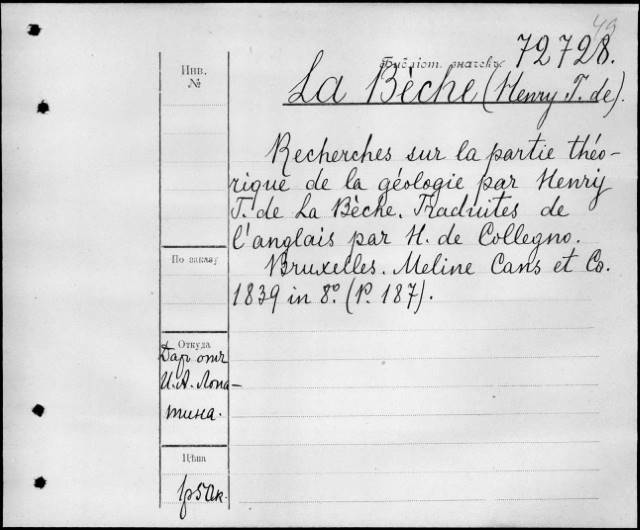 43
72728.
Библіот. значекъ
Инв.
№
La Bèche (Henry T. de).
Recherches sur la partie théo-
rique de la géologie par Henry
T. de La Bèche. Traduites de
l'anglais par H. de Collegno.
По заказу
Bruxelles. Meline Cans et Co.
1839 in 8º (P. 187).
Откуда
Дар отъ
И. А. Лопа-
тина.
Цѣна